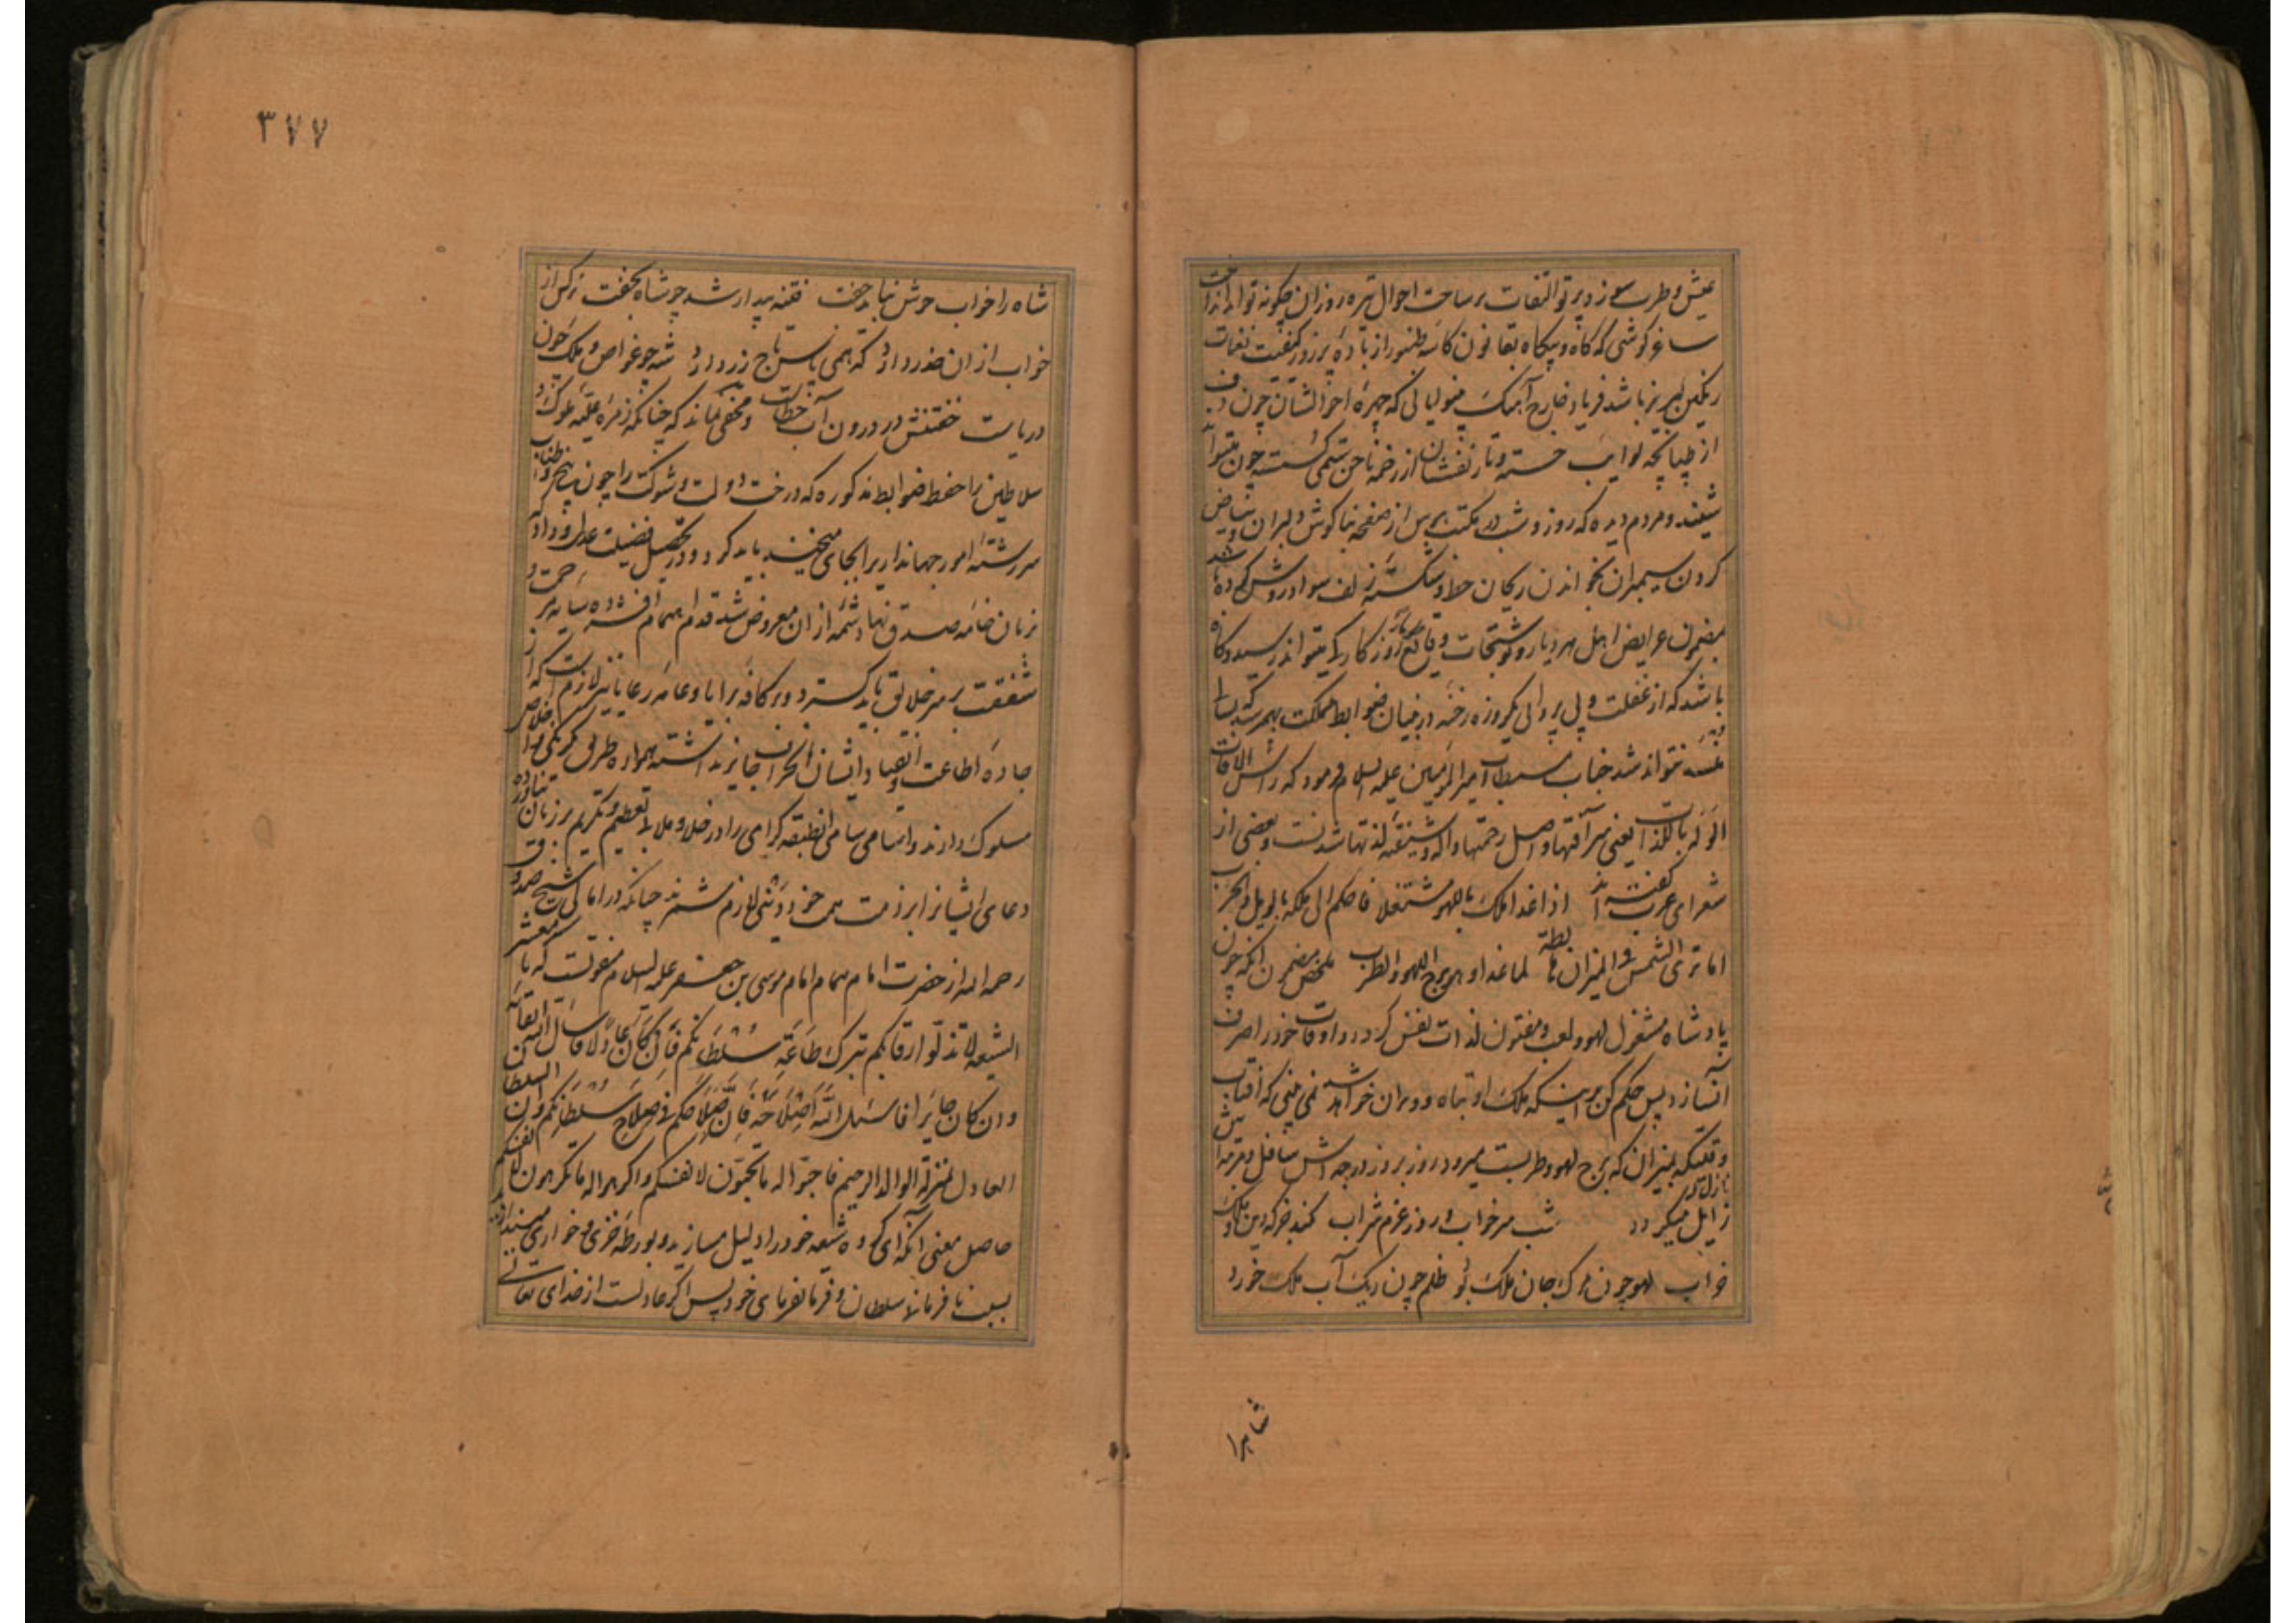 عیش و طرب سوزد پرتو التفات بر ساحت احوال تیره روزان چگونه تواند انداخت
ساغر گوشی که گاه و بیگاه بقانون کاسه طنبور از باده پرزور کیفیت نغمات
رنگین لبریز باشد فریاد خارج آهنگ بینوایانی که چهره احوالشان چون دف
از طپانچه نوایب خسته و تار نفسشان از زخمه ناخن ستمی گسسته چون تواند
شنید و مردم دیده که روز و شب در مکتب هوس از صفحه بناگوش دلبران و بیاض
گردن سیمبران بخواندن ریحان خط و شکسته زلف سواد روشن کرده باشد
بمضمون عرایض اهل هر دیار و نوشتجات وقایع روزگار کی میتواند رسید و گاه
باشد که از غفلت و بی پروائی یکروزه رخنه در بنیان ضوابط مملکت بهمرسد که بسالها
بسته نتواند شد جناب مستطاب امیرالمؤمنین علیه السلام فرمود که راس الآفات
الوله باللذات یعنی سر آفتها و اصل زحمتها واله و شیفته لذتها شدنست و بعضی از
شعرای عرب گفته اند اذا غدا ملک باللهو مشتغلا فاحکم الی ملکه بالویل و الحرب
اما تری الشمس فی المیزان هابطة لما غدا و هو برج اللهو و الطرب ملخص مضمون آنکه چون
پادشاه مشغول لهو و لعب و مفتون لذات نفس گردد و اوقات خود را صرف
آن سازد پس حکم کن بر اینکه ملک او تباه و ویران خواهد شد نمی بینی که آفتاب
وقتیکه بمیزان که برج لهو و طربست میرود روز بروز درجه اش سافل و مرتبه اش نازل
زایل میگردد شب سر خواب و روز عزم شراب نکند جز که دین و ملک
خراب لهو چون مرگ جان ملک بود ظلم چون ریگ آب ملک خورد
شاه را
٣٧٧
شاه را خواب خوش نباید خفت فتنه بیدار شد چو شاه بخفت نرگس از
خواب از آن حذر دارد که همی پاس تاج زر دارد شه چو غواص و ملک چون
دریاست خفتنش در درون آب خطاست و مخفی نماند که چنانکه زمره علیه ملوک و
سلاطین را حفظ ضوابط مذکوره که درخت دولت و شوکت را چون بیخ و
سررشته امور جهانداری را بجای میخند باید کرد و در تحصیل فضیلت عدل و داد که
بزبان خامه صدق نهاد شمه از آن معروض شد قدم اهتمام افشرده سایه مرحمت و
شفقت بر سر خلایق باید گسترد و بر کافه برایا و عامه رعایا نیز لازمست که از
جاده اطاعت و انقیاد ایشان انحراف جایز نداشته همواره طریق یکرنگی و اخلاص
مسلوک دارند و اسامی سامی آنطبقه گرامی را در خلا و ملا بتعظیم و تکریم بر زبان
دعای ایشانرا بر ذمت همت خود لازم شمرند چنانکه در امالی شیخ صدوق
رحمه الله از حضرت امام همام امام موسی بن جعفر علیه السلام منقولست که یا معشر
الشیعه لا تذلوا رقابکم بترک طاعة سلطانکم فان کان عادلا فاسال الله ابقائه
و ان کان جایرا فاسئل الله اصلاحه فان صلاحکم فی صلاح سلطانکم و ان السلطان
العادل بمنزلة الوالد الرحیم فاحبوا له ما تحبون لانفسکم و اکرهوا له ما تکرهون لانفسکم
حاصل معنی آنکه ای گروه شیعه خود را ذلیل مسازید و بورطه خزی و خواری میندازید
بسبب نافرمانی سلطان و فرمانفرمای خود پس اگر عادلست از خدای تعالی